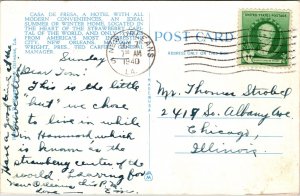 CASA DE FRESA, A HOTEL WITH ALL
MODERN CONVENIENCES, AN IDEAL
SUMMER OR WINTER HOME, LOCATED IN
THE HEART OF THE STRAWBERRY CAPI-
TAL OF THE WORLD, AND ONLY
FROM AMERICA'S MOST INTERESTING
CITY, NEW ORLEANS.
WRIGHT, PRES. TED CARPENTER,
MANAGER.
POST CARD
NEW ORLEANS
AM
1940
LA.
UNITED STATES POSTAGE
Sunday
Dear Tom:
This is the little
"hut" we chose
to live in while
in Hammond, which
is known as the
strawberry center of the
world. Leaving for
New Orleans this P.M.
Love
Have a good time at the
Mr. Thomas Strobel
2417 So. Albany Ave
Chicago,
Illinois.